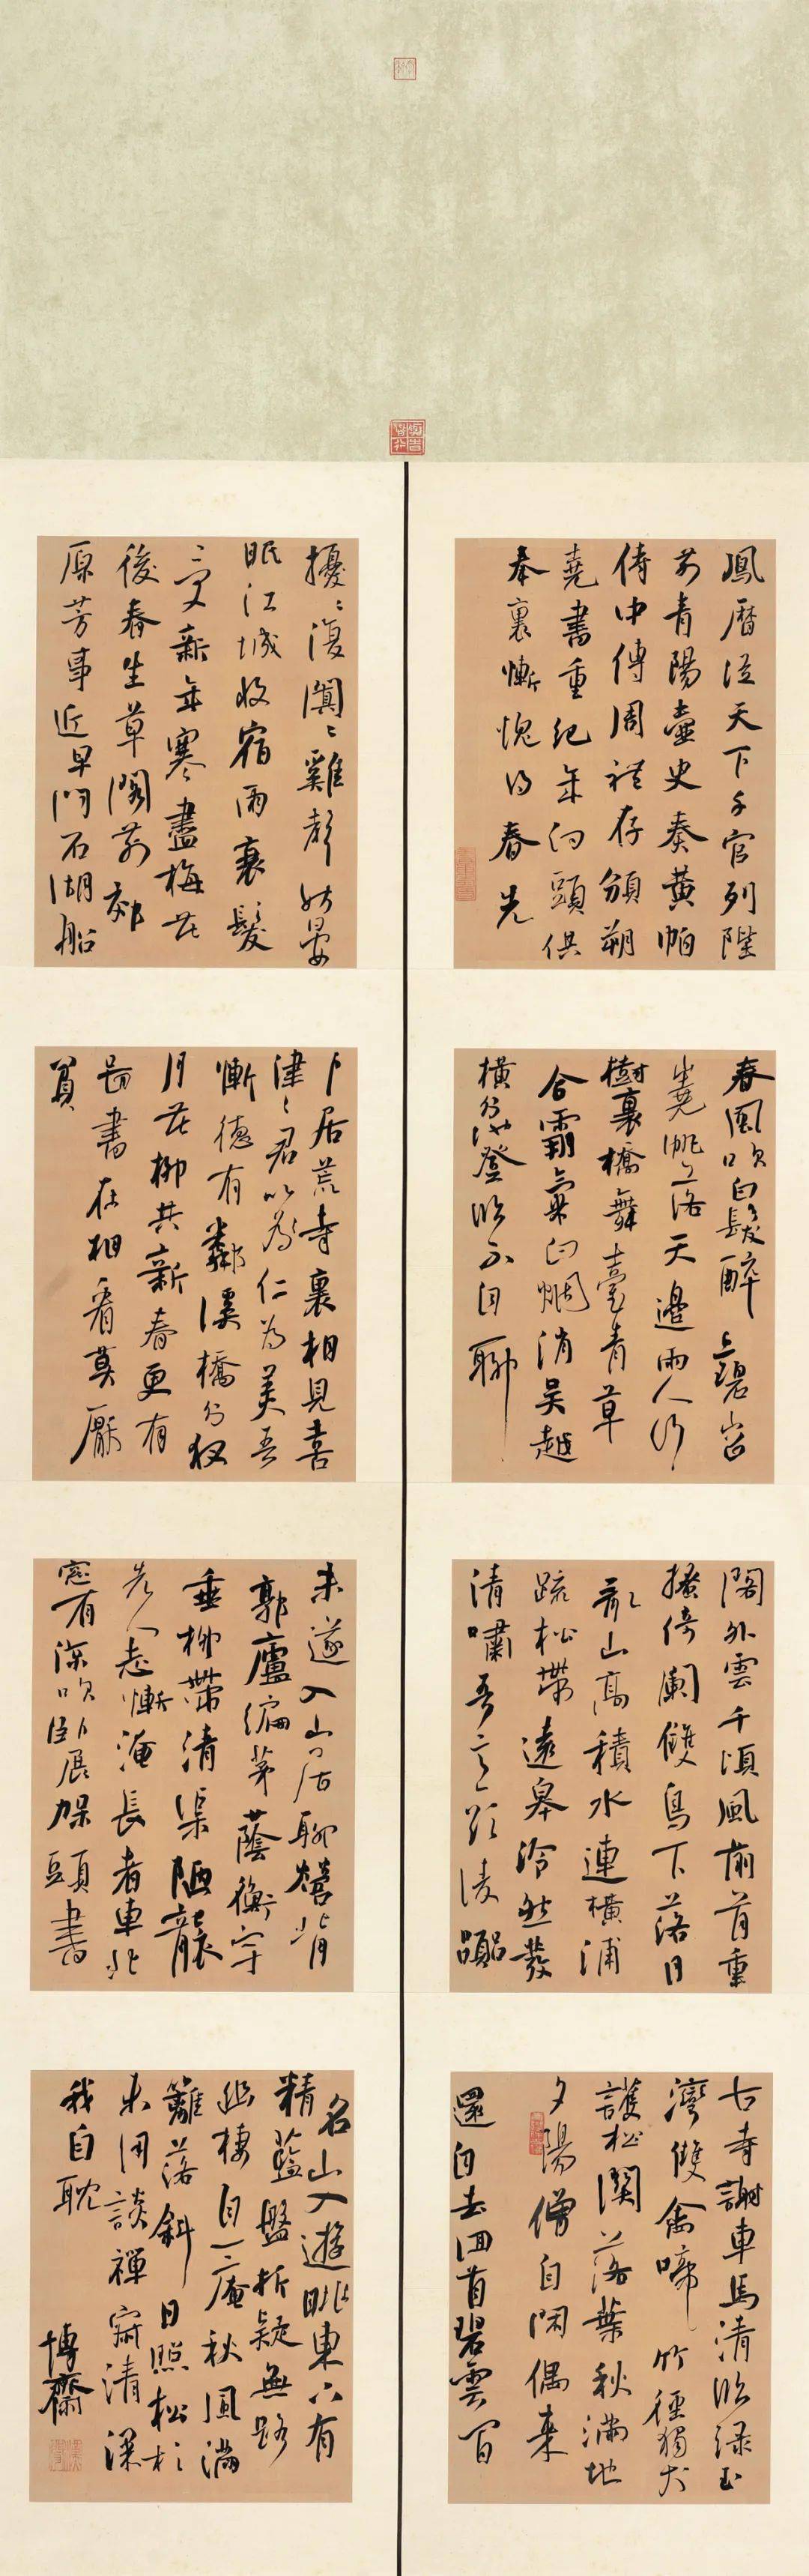 鳳曆從天下千官列陛
前青陽壺史奏黃帕
侍中傳周禮存頒朔
堯書重紀年白頭俱
奉裏慚愧得春光
春風吹白髮醉上碧岧
嶤帆落天邊雨人行
樹裏橋舞臺青草
合霸氣白烟消吳越
橫分地登臨不自聊
閣外雲千頃風前首重
搔倚闌雙鳥下落日
亂山高積水連橫浦
疏松帶遠皋泠然發
清嘯吾意欲凌
古寺謝車馬清臨綠玉
灣雙禽啼竹徑獨犬
護松關落葉秋滿地
夕陽僧自閑偶來
還自去回首碧雲間
擾擾復闐闐雞聲始晏
眠江城收宿雨衰鬢
受新年寒盡梅花
後春生草閣前郊
原芳事近早問石湖船
卜居荒寺裏相見喜
津津君以為仁為美吾
慚德有鄰溪橋分杖
月花柳共新春更有
圖書在相看莫厭
貧
未遂入山居聊營背
郭廬編茅蔭衡宇
垂柳帶清渠陋襲
先人志慚淹長者車北
窗有深吹臥展牀頭書
名山入遊眺東下有
精藍盤折疑無路
幽棲自一庵秋風滿
籬落斜日照松杉
未用談禪寂清深
我自耽
博齋